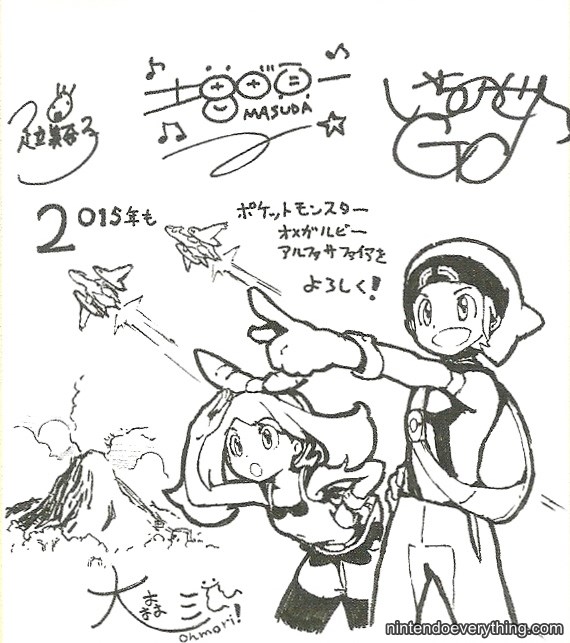 MASUDA
GO
2015年も
ポケットモンスター
オメガルビー
アルファサファイアを
よろしく!
大
ohmori!
nintendoeverything.com